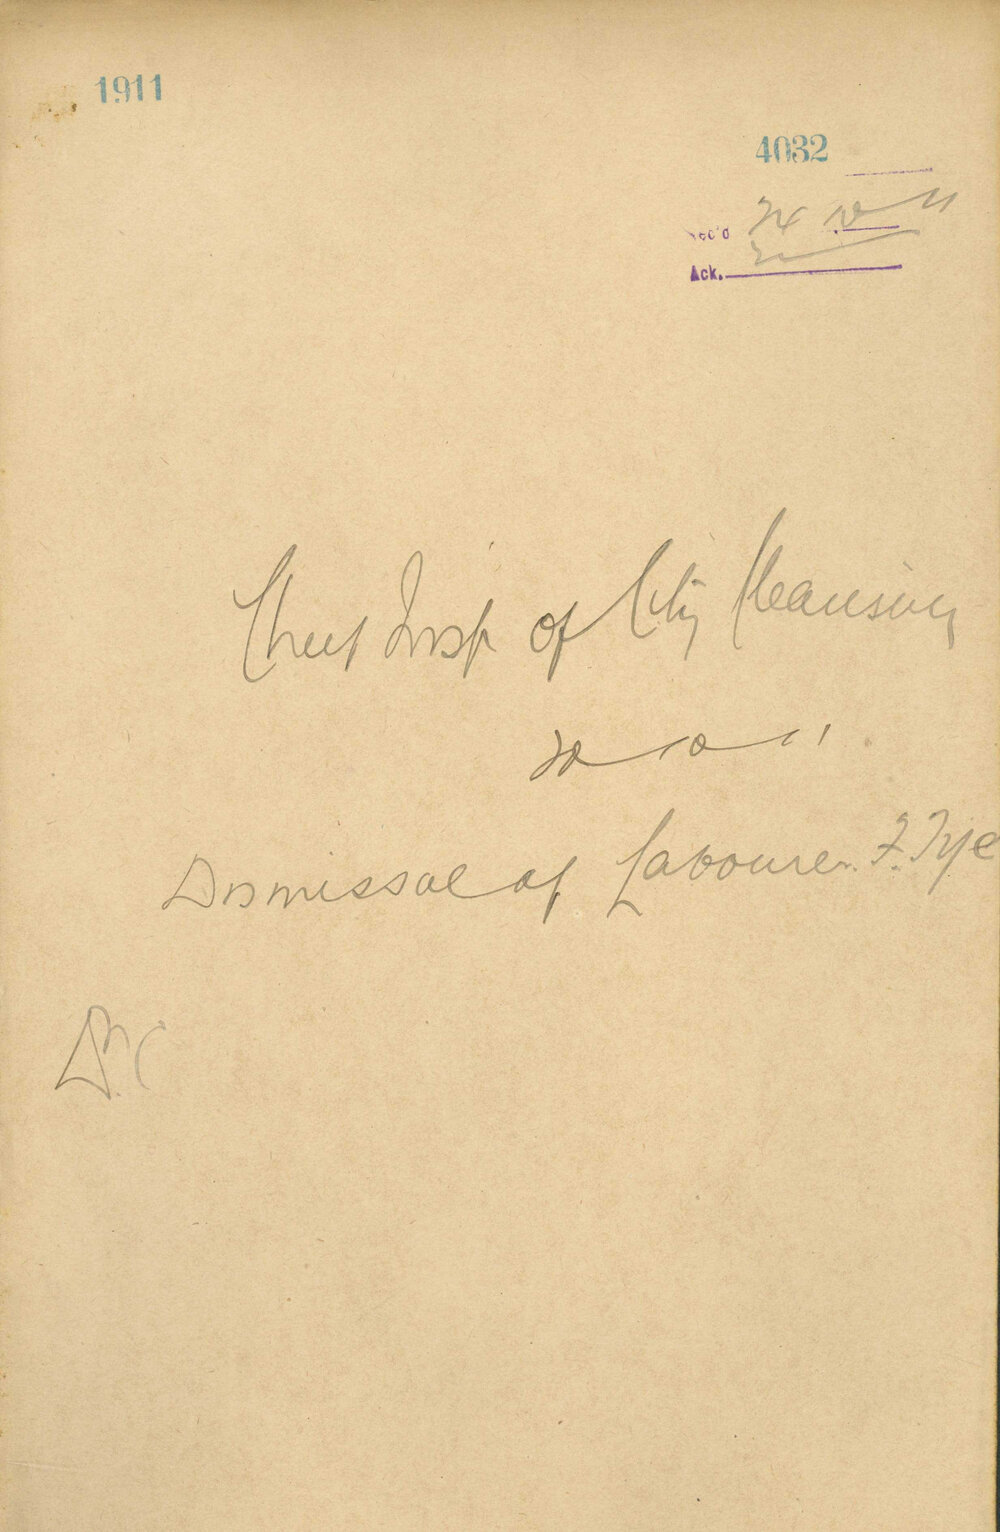 1911
4032
Rec'd 24 10 11
Ack.
Chief Insp of City Cleansing
20 10 11
Dismissal of Labourer F. Tye